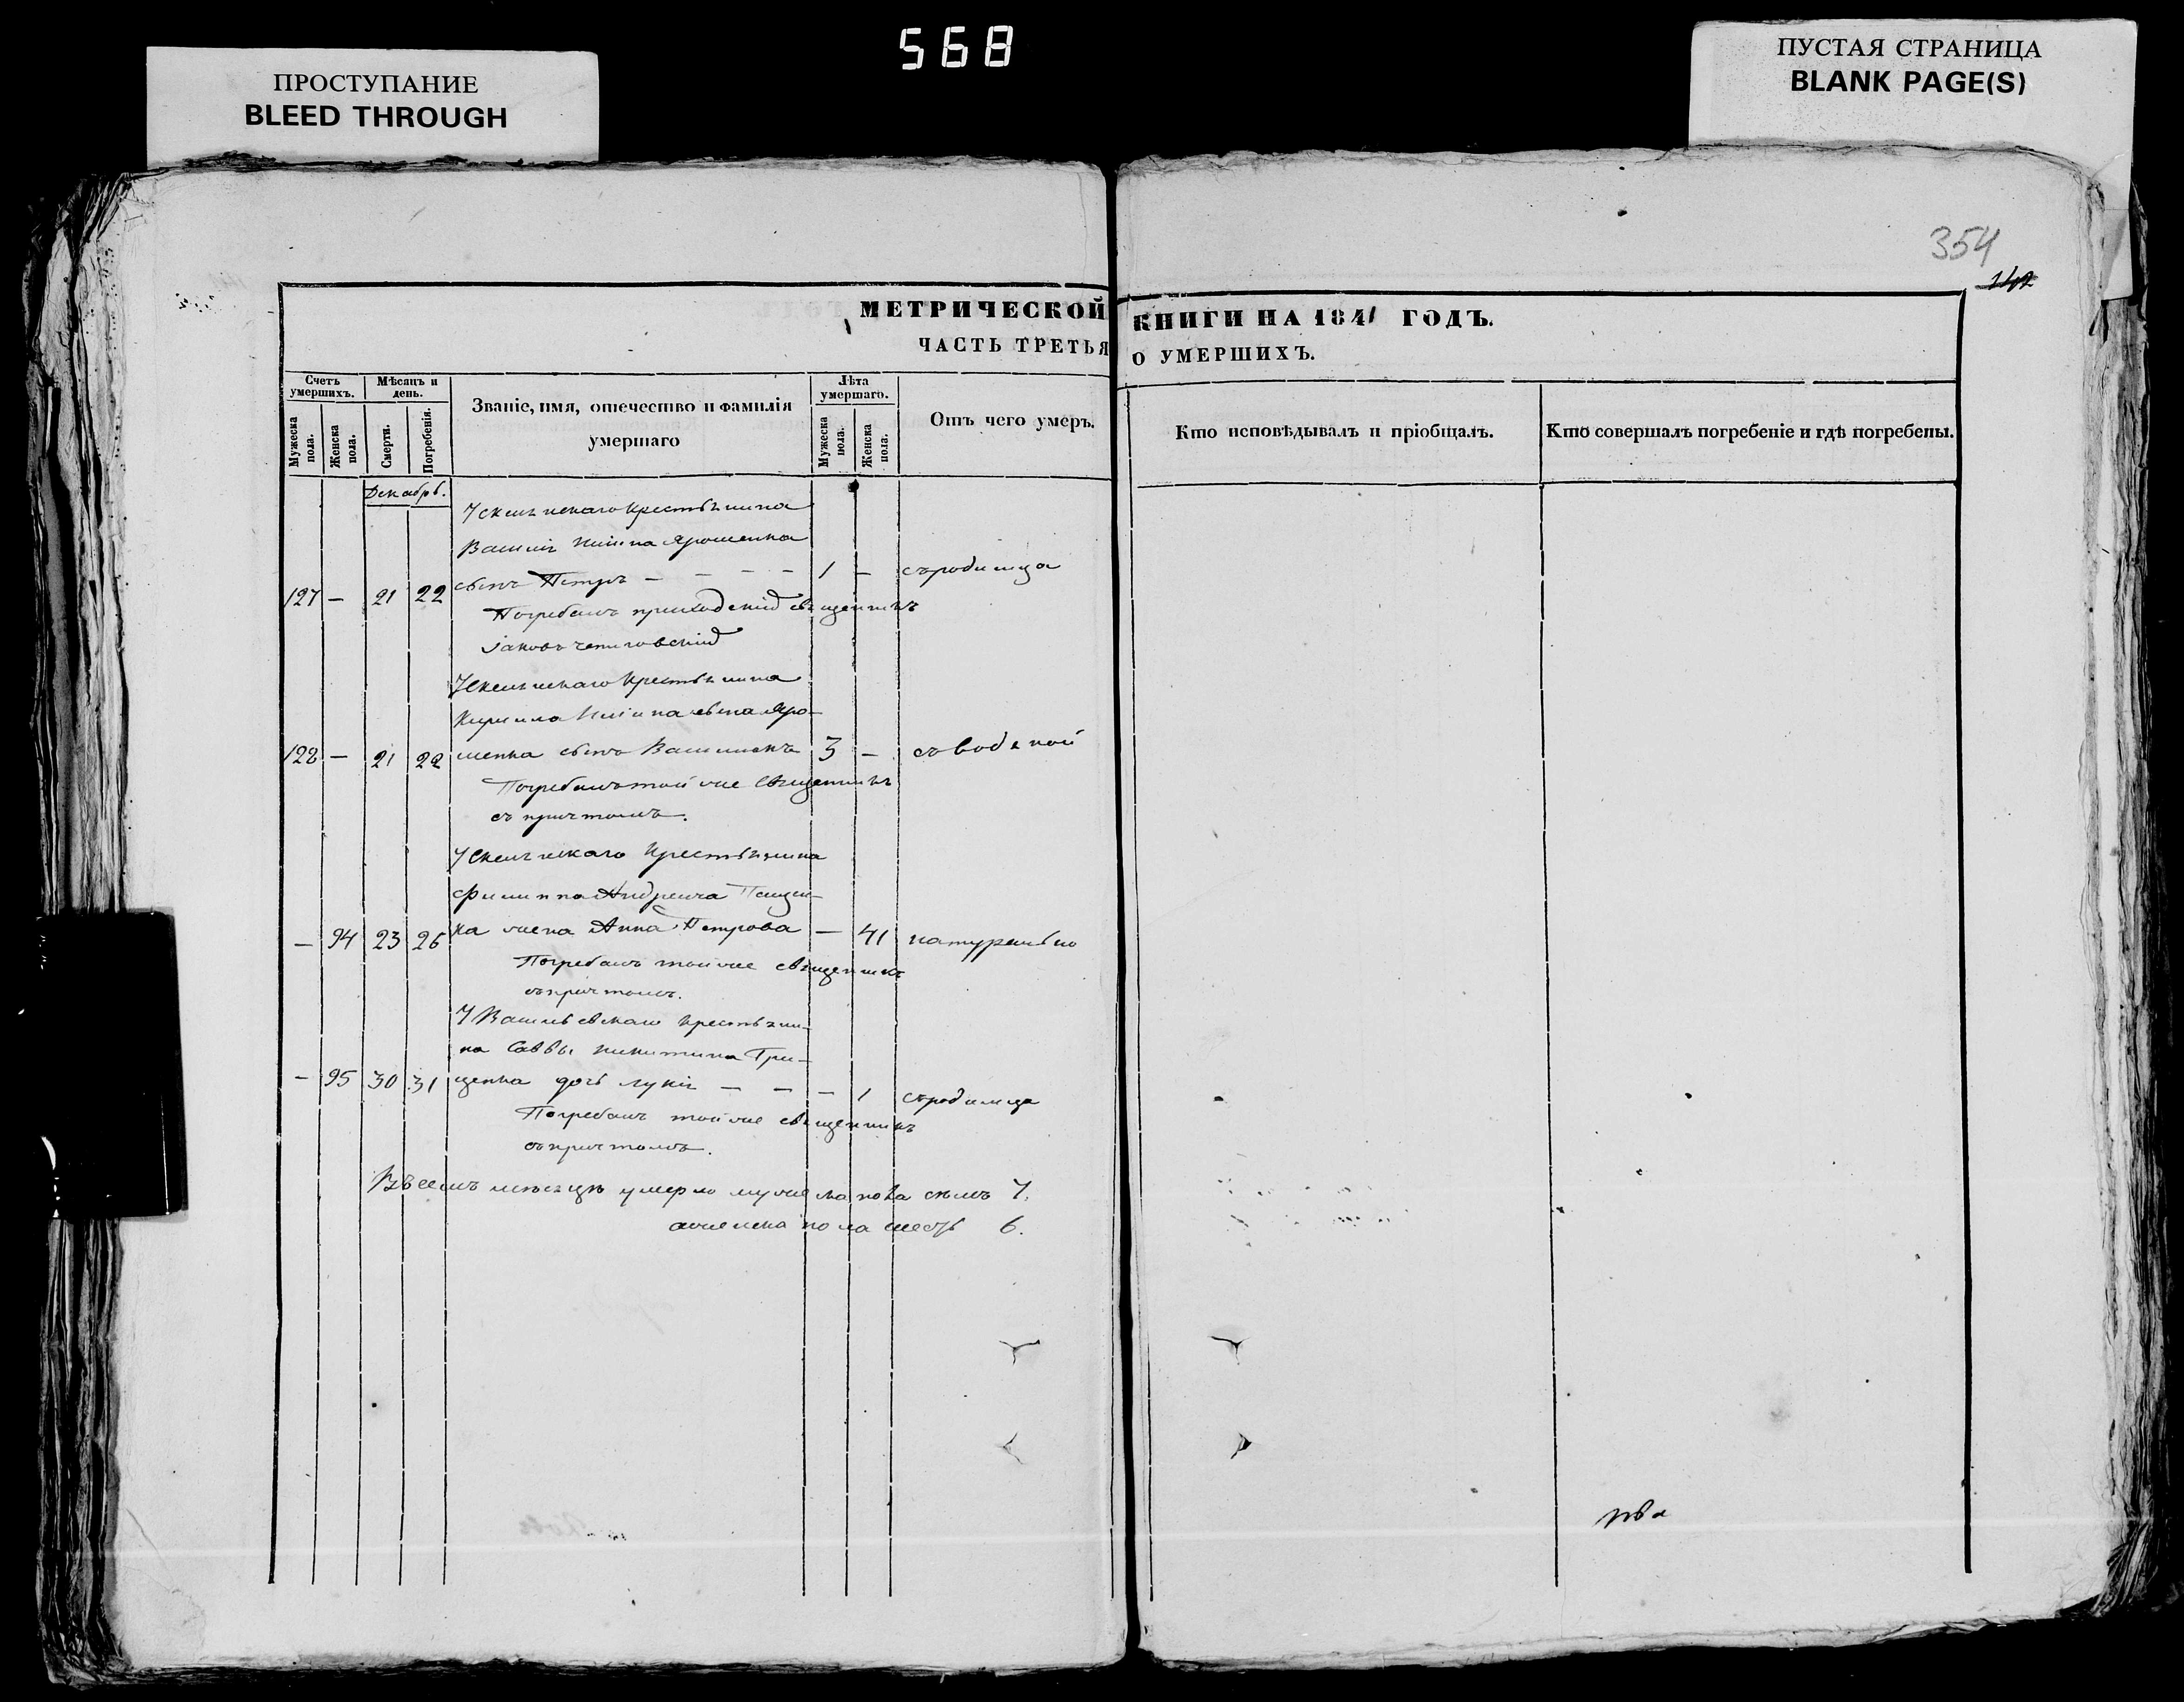 568
ПРОСТУПАНИЕ
BLEED THROUGH
ПУСТАЯ СТРАНИЦА
BLANK PAGE(S)
354
МЕТРИЧЕСКОЙ КНИГИ НА 1841 ГОДЪ.
ЧАСТЬ ТРЕТЬЯ О УМЕРШИХЪ.
Счетъ умершихъ.
Мужеска пола.
Женска пола.
Мѣсяцъ и день.
Смерти.
Погребенія.
Званіе, имя, отечество и фамилія умершаго
Лѣта умершаго.
Мужеска пола.
Женска пола.
Отъ чего умеръ.
Кто исповѣдывалъ и пріобщалъ.
Кто совершалъ погребеніе и гдѣ погребены.
Декабрь.
крестьянина
Ярошенка
127 — 21 22 сынъ Петръ — — — — 1 — съродимца
Погребалъ приходскій священникъ
Іаковъ
крестьянина
Кирилла Яро-
128 — 21 22 шенка сынъ 3 — съ водяной
Погребалъ той же священникъ
съ причтомъ.
крестьянина
Филиппа Андреича
— 94 23 26 ка жена Анна Петрова — 41 натурально
Погребалъ той же священникъ
съ причтомъ.
У Васильевскаго крестьяни-
на Саввы Никитина Гри-
— 95 30 31 ценка дочь — — — 1 съродимца
Погребалъ той же священникъ
съ причтомъ.
Въ семъ мѣсяцѣ умерло мужеска пола семь 7.
а женска пола шесть 6.